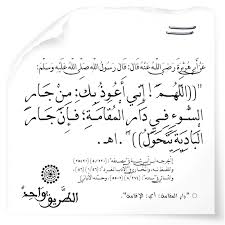 عن أبي هريرة رضي الله عنه قال: قال رسول الله صلى الله عليه وسلم:
"((اللَّهُمَّ! إِنِّي أَعُوذُ بِكَ: مِنْ جَارِ
السُّوءِ فِي دَارِ الْمُقَامَةِ؛ فَإِنَّ جَارَ
الْبَادِيَةِ يَتَحَوَّلُ))". اهـ.
وحسنه الألباني
"دار المقامة: أي: الإقامة".
الطريق واحد